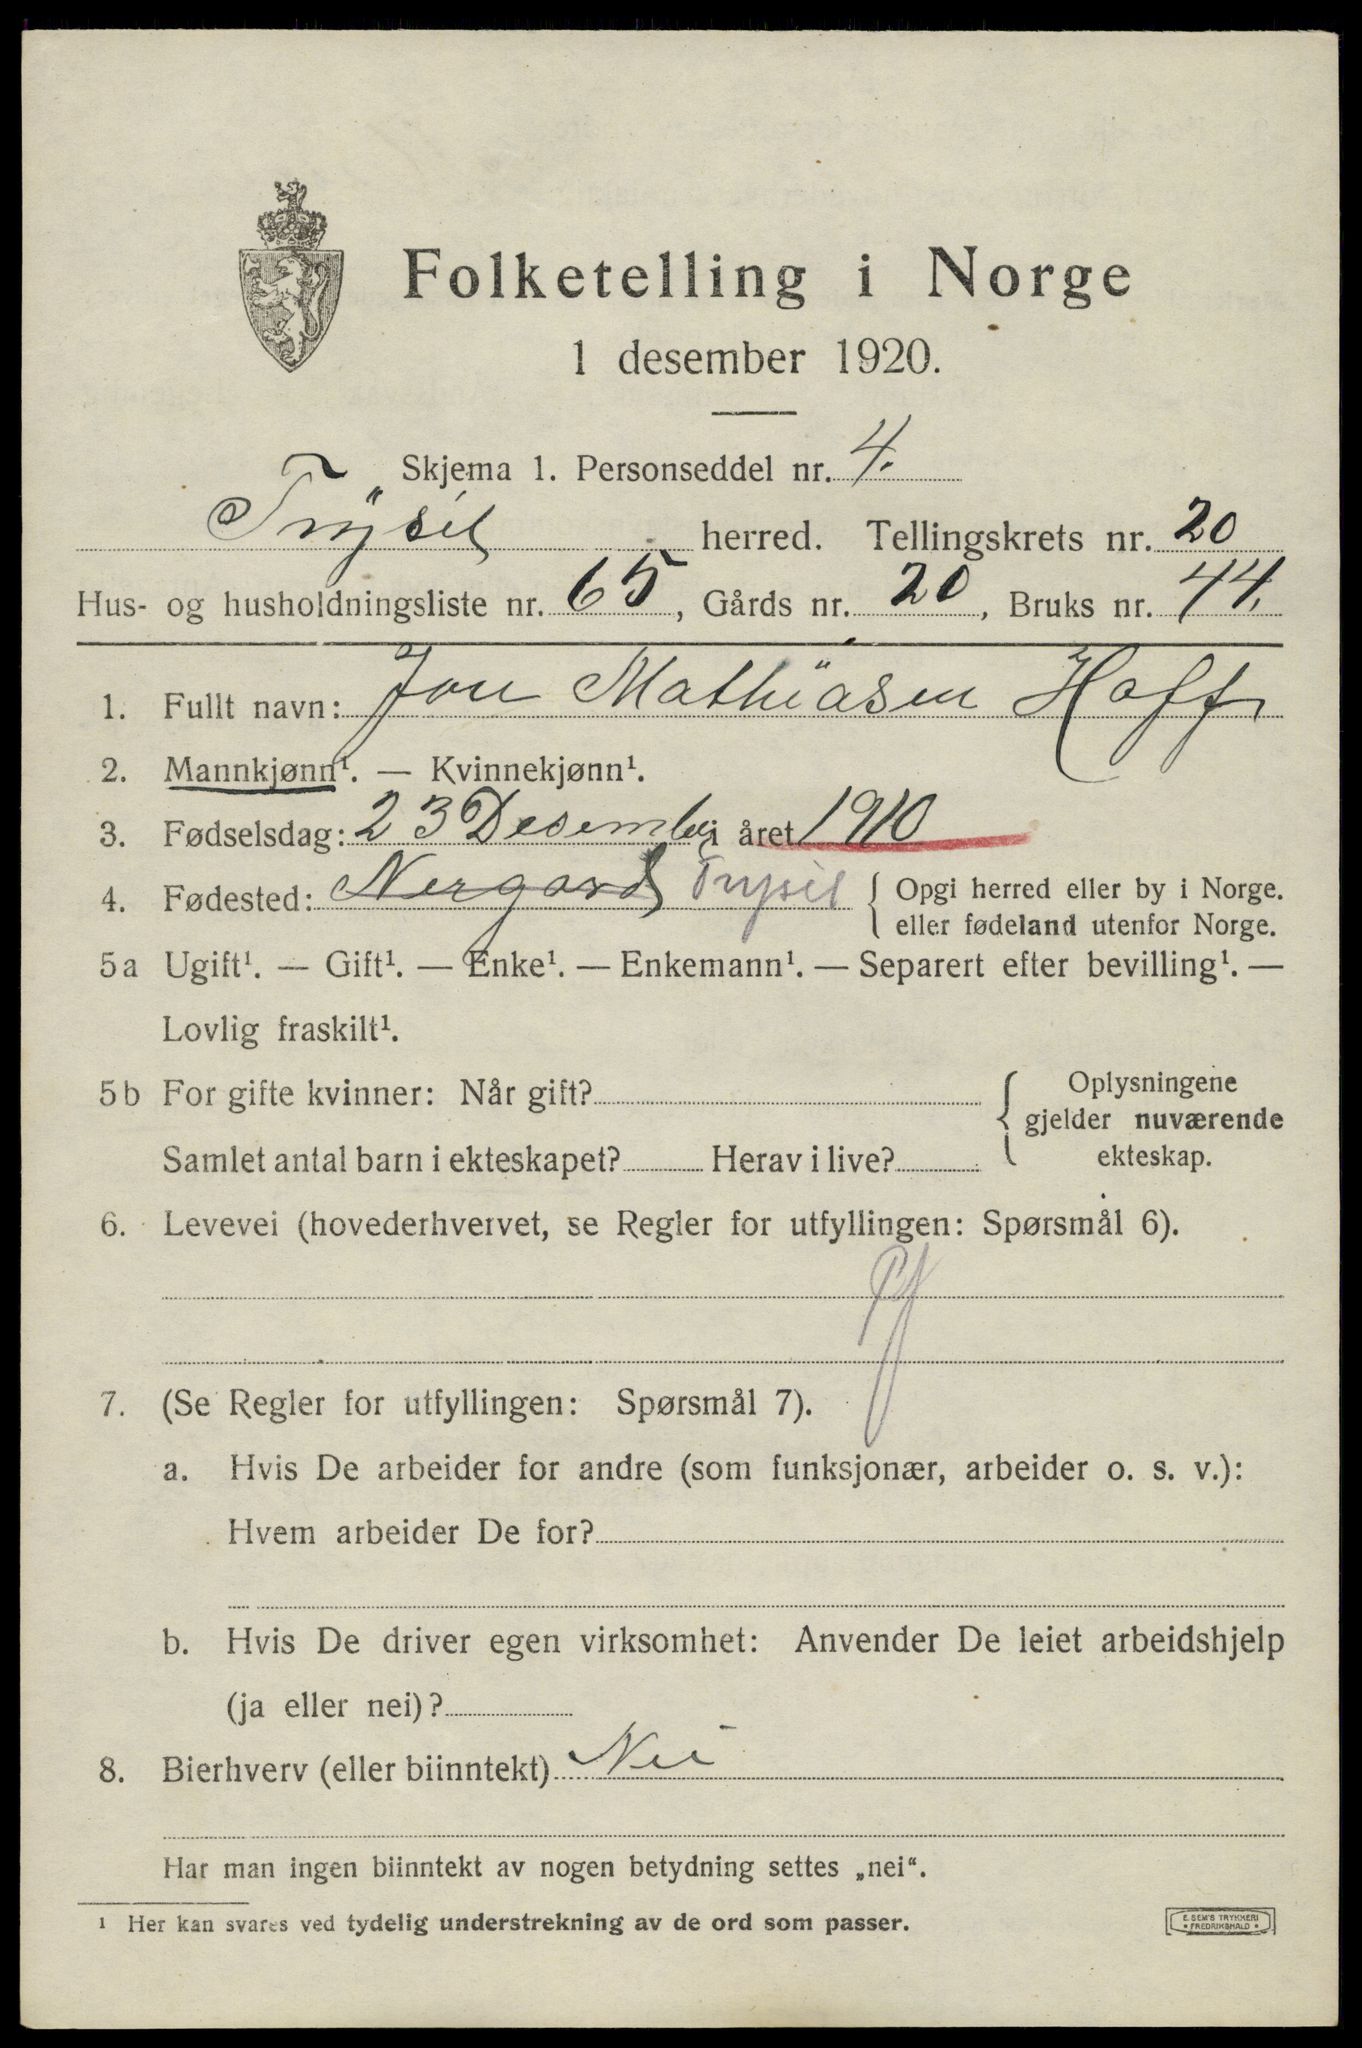 Folketelling i Norge
1 desember 1920.
Skjema 1. Personseddel nr. 4.
Trysil herred. Tellingskrets nr. 20
Hus- og husholdningsliste nr. 65, Gårds nr. 20, Bruks nr. 44.
1. Fullt navn: Jon Mathiasen Hoff
2. Mannkjønn¹. — Kvinnekjønn¹.
3. Fødselsdag: 23 Desember i året 1910
4. Fødested: Nergard Trysil { Opgi herred eller by i Norge.
eller fødeland utenfor Norge.
5a Ugift¹. — Gift¹. — Enke¹. — Enkemann¹. — Separert efter bevilling¹. —
Lovlig fraskilt¹.
5b For gifte kvinner: Når gift? { Oplysningene
gjelder nuværende
ekteskap.
Samlet antal barn i ekteskapet? Herav i live?
6. Levevei (hovederhvervet, se Regler for utfyllingen: Spørsmål 6).
7. (Se Regler for utfyllingen: Spørsmål 7).
a. Hvis De arbeider for andre (som funksjonær, arbeider o. s. v.):
Hvem arbeider De for?
b. Hvis De driver egen virksomhet: Anvender De leiet arbeidshjelp
(ja eller nei)?
8. Bierhverv (eller biinntekt) Nei
Har man ingen biinntekt av nogen betydning settes „nei“.
¹ Her kan svares ved tydelig understrekning av de ord som passer.
E. SEM'S TRYKKERI
• FREDRIKSHALD •